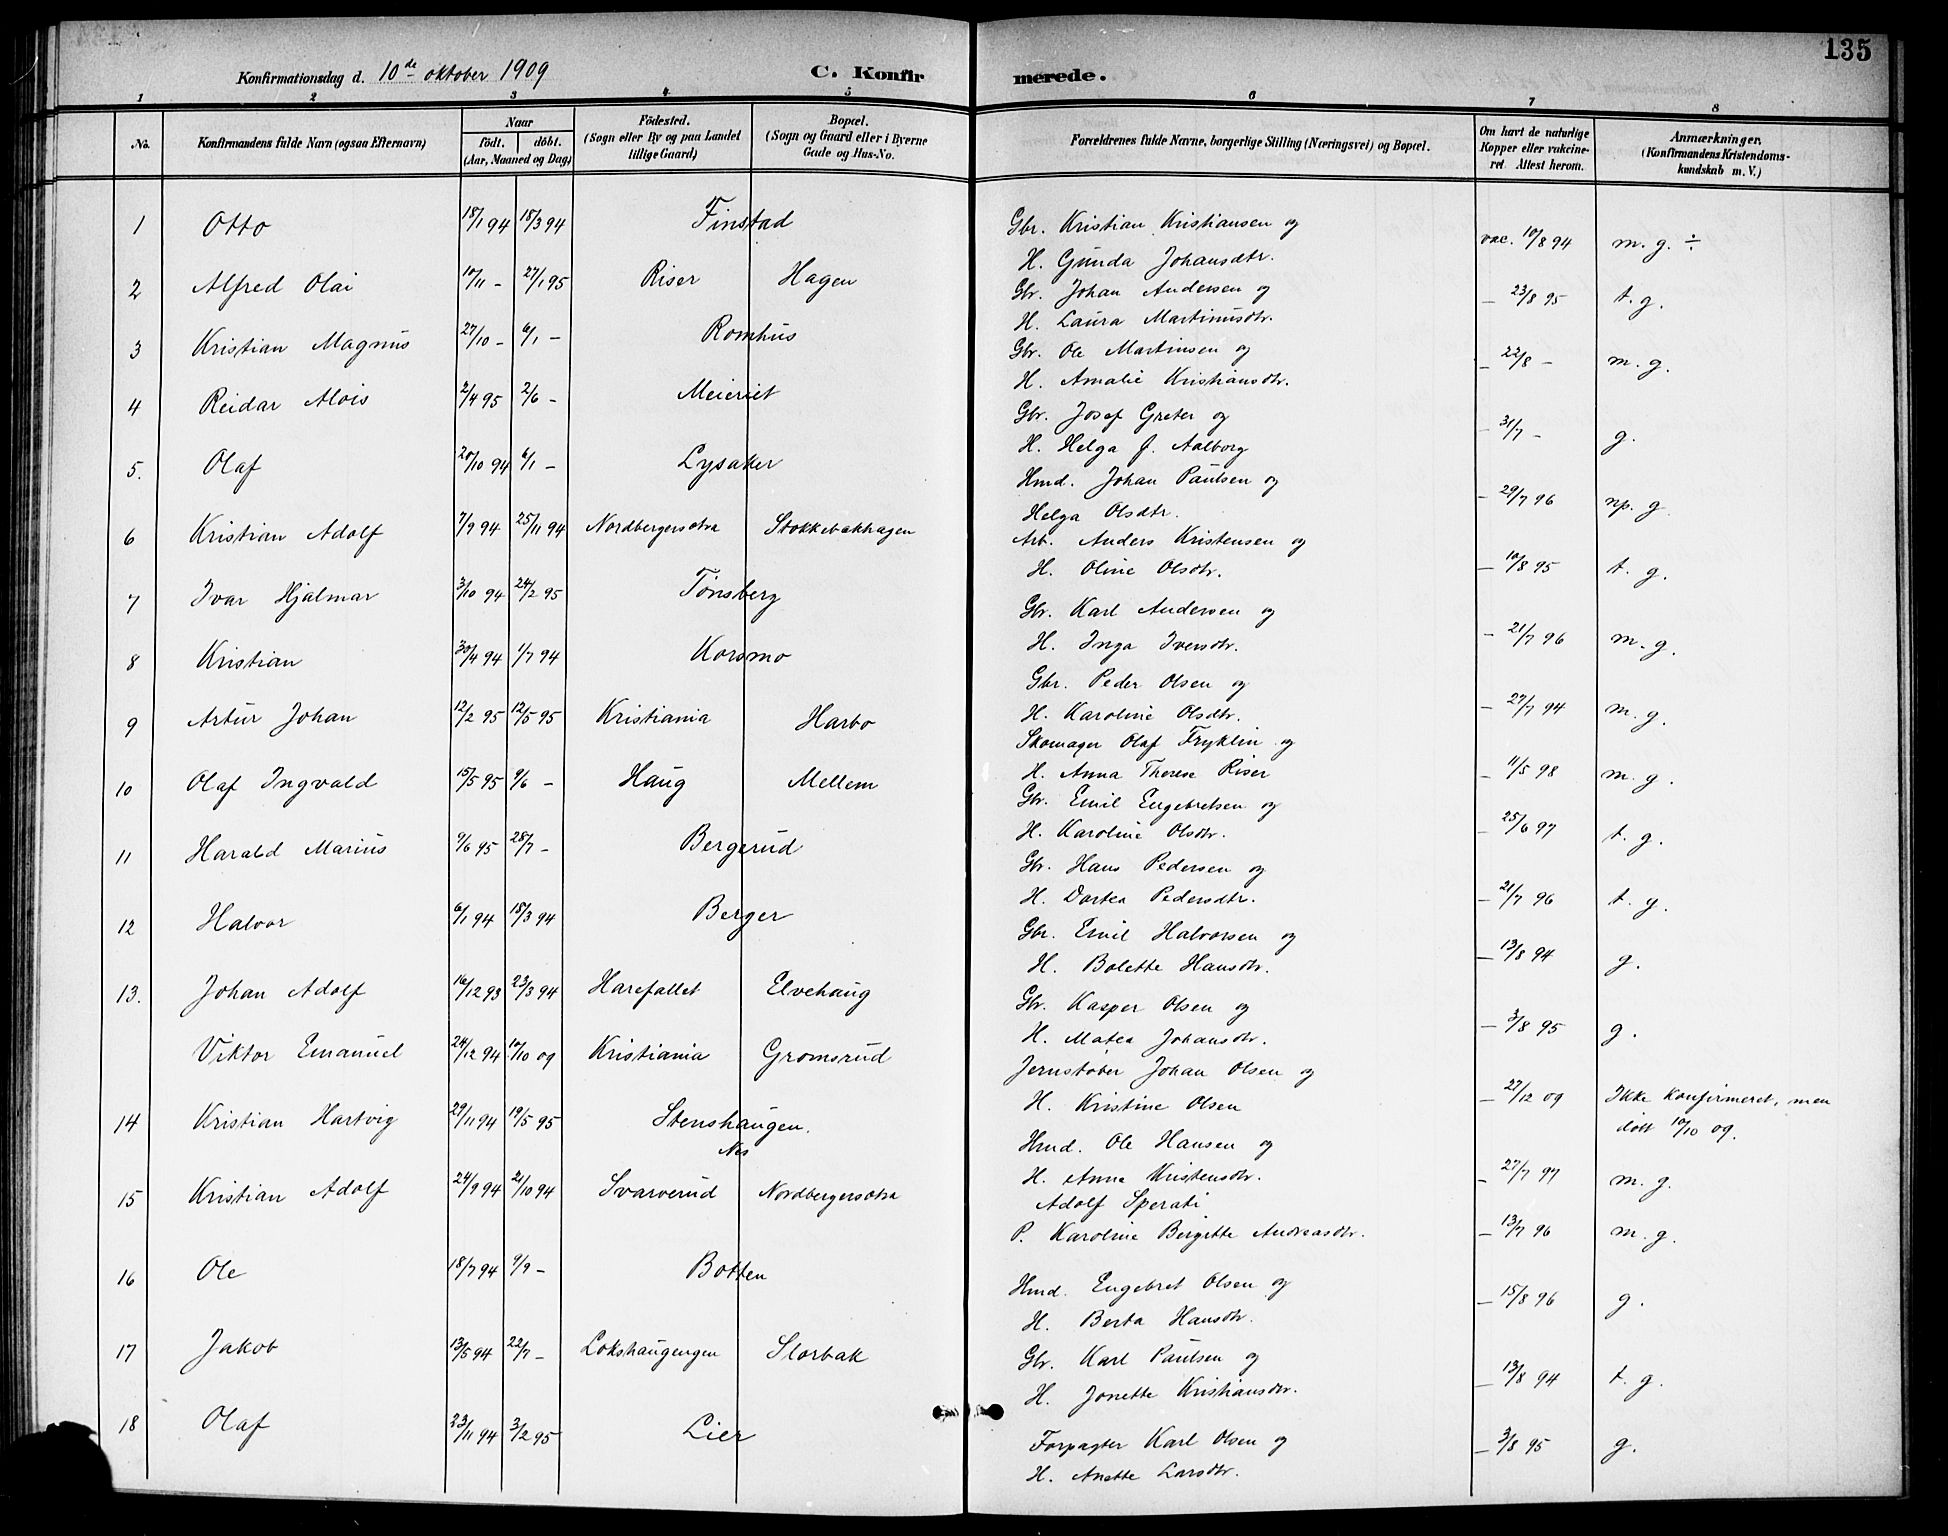 135
Konfirmationsdag d. 10de oktober 1909 C. Konfirmerede.
1 2 3 4 5 6 7 8
No. Konfirmandens fulde Navn (ogsaa Efternavn) Naar födt. döbt. (Aar, Maaned og Dag) Födested. (Sogn eller By og paa Landet tillige Gaard) Bopæl. (Sogn og Gaard eller i Byerne Gade og Hus-No. Forældrenes fulde Navne, borgerlige Stilling (Næringsvei) og Bopæl. Om havt de naturlige Kopper eller vakcineret. Attest herom. Anmærkninger. (Konfirmandens Kristendomskundskab m. V.)
1 Otto 18/1 94 18/3 94 Finstad Gbr. Kristian Kristiansen og
H. Gunda Johansdtr. vac. 10/8 94 m. g. ÷
2 Alfred Olai 10/11 - 27/1 95 Riser Hagen Gbr. Johan Andersen og
H. Laura Martinusdtr. - 23/8 95 t. g.
3 Kristian Magnus 27/10 - 6/1 - Romhus Gbr. Ole Martinsen og
H. Amalie Kristiansdtr. - 22/8 - m. g.
4 Reidar Alois 2/4 95 2/6 - Meieriet Gbr. Josef Greter og
H. Helga J. Aalborg - 31/7 - g.
5. Olaf 20/10 94 6/1 - Lysaker Hmd. Johan Paulsen og
Helga Olsdtr. - 29/7 96 np. g.
6 Kristian Adolf 7/9 94 25/11 94 Nordbergersætra Stokkebækhagen Arb. Anders Kristensen og
H. Oline Olsdtr. - 10/8 95 t. g.
7 Ivar Hjalmar 3/10 94 24/2 95 Tønsberg Gbr. Karl Andersen og
H. Inga Iversdtr. - 21/7 96 m. g.
8 Kristian 30/4 94 1/7 94 Korsmo Gbr. Peder Olsen og
H. Karoline Olsdtr. - 27/7 94 m. g.
9 Artur Johan 12/2 95 12/5 95 Kristiania Harbo Skomager Olaf Fryklin og
H. Anna Therese Riser - 11/5 98 m. g.
10 Olaf Ingvald 15/5 95 9/6 - Haug Mellem Gbr. Emil Engebretsen og
H. Karoline Olsdtr. - 25/6 97 t. g.
11 Harald Marius 9/6 95 28/7 - Bergerud Gbr. Hans Pedersen og
H. Dortea Pedersdtr. - 21/7 96 t. g.
12 Halvor 6/1 94 18/3 94 Berger Gbr. Emil Halvorsen og
H. Bolette Hansdtr. - 13/8 94 g.
13. Johan Adolf 16/12 93 23/3 94 Harefallet Elvehaug Gbr. Kasper Olsen og
H. Matea Johansdtr. - 3/8 95 g.
Viktor Emanuel 24/12 94 10/10 09 Kristiania Gromsrud Jernstøber Johan Olsen og
H. Kristine Olsen - 27/12 09 Ikke konfirmeret, men
døbt 10/10 09.
14 Kristian Hartvig 29/11 94 19/5 95 Stenshaugen. Hmd. Ole Hansen og
H. Anna Kristensdtr. - 27/7 97 m. g.
Nes
15 Kristian Adolf 24/9 94 21/10 94 Svarverud Nordbergersætra Adolf Sperati
P. Karoline Birgitte Andreasdtr. - 13/7 96 m. g.
16 Ole 18/7 94 9/9 - Botten Hmd. Engebret Olsen og
H. Berta Hansdtr. - 15/8 96 g.
17 Jakob 13/5 94 22/7 - Lokshaugengen Storbak Gbr. Karl Paulsen og
H. Jonette Kristiansdtr. - 13/8 94 t. g.
18 Olaf 23/11 94 3/2 95 Lier Forpagter Karl Olsen og
H. Anette Larsdtr. - 3/8 95 g.